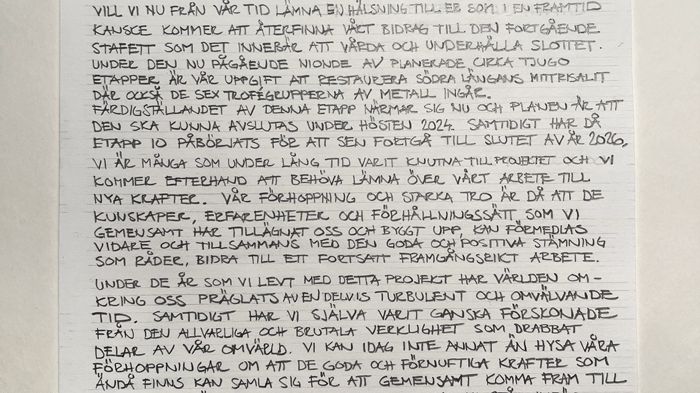 VILL VI NU FRÅN VÅR TID LÄMNA EN HÄLSNING TILL ER SOM I EN FRAMTID
KANSKE KOMMER ATT ÅTERFINNA VÅRT BIDRAG TILL DEN FORTGÅENDE
STAFETT SOM DET INNEBÄR ATT VÅRDA OCH UNDERHÅLLA SLOTTET.
UNDER DEN NU PÅGÅENDE NIONDE AV PLANERADE CIRKA TJUGO
ETAPPER ÄR VÅR UPPGIFT ATT RESTAURERA SÖDRA LÄNGANS MITTRISALIT
DÄR OCKSÅ DE SEX TROFÉGRUPPERNA AV METALL INGÅR.
FÄRDIGSTÄLLANDET AV DENNA ETAPP NÄRMAR SIG NU OCH PLANEN ÄR ATT
DEN SKA KUNNA AVSLUTAS UNDER HÖSTEN 2024. SAMTIDIGT HAR DÅ
ETAPP 10 PÅBÖRJATS FÖR ATT SEN FORTGÅ TILL SLUTET AV ÅR 2026.
VI ÄR MÅNGA SOM UNDER LÅNG TID VARIT KNUTNA TILL PROJEKTET OCH VI
KOMMER EFTERHAND ATT BEHÖVA LÄMNA ÖVER VÅRT ARBETE TILL
NYA KRAFTER. VÅR FÖRHOPPNING OCH STARKA TRO ÄR DÅ ATT DE
KUNSKAPER, ERFARENHETER OCH FÖRHÅLLNINGSSÄTT, SOM VI
GEMENSAMT HAR TILLÄGNAT OSS OCH BYGGT UPP, KAN FÖRMEDLAS
VIDARE OCH TILLSAMMANS MED DEN GODA OCH POSITIVA STÄMNING
SOM RÅDER, BIDRA TILL ETT FORTSATT FRAMGÅNGSRIKT ARBETE.
UNDER DE ÅR SOM VI LEVT MED DETTA PROJEKT HAR VÄRLDEN OM-
KRING OSS PRÄGLATS AV EN DELVIS TURBULENT OCH OMVÄLVANDE
TID. SAMTIDIGT HAR VI SJÄLVA VARIT GANSKA FÖRSKONADE
FRÅN DEN ALLVARLIGA OCH BRUTALA VERKLIGHET SOM DRABBAT
DELAR AV VÅR OMVÄRLD. VI KAN IDAG INTE ANNAT ÄN HYSA VÅRA
FÖRHOPPNINGAR OM ATT DE GODA OCH FÖRNUFTIGA KRAFTER SOM
ÄNDÅ FINNS KAN SAMLA SIG FÖR ATT GEMENSAMT KOMMA FRAM TILL